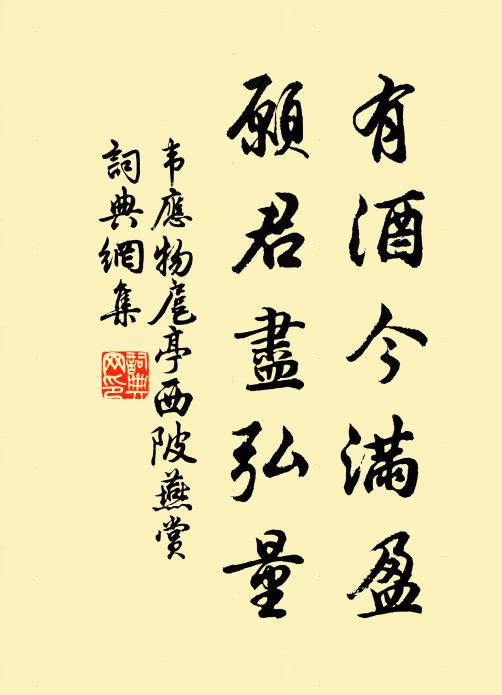 有酒今滿盈
願君盡弘量
韦應物扈亭西陂燕賞
詞典網集
詞典網印